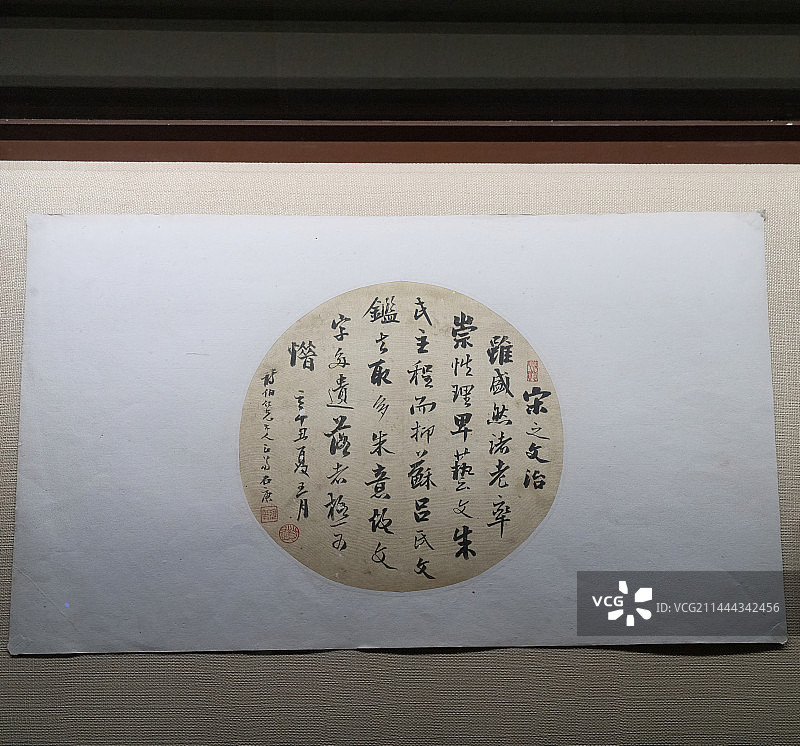 宋之文治
雖盛然諸老率
崇性理卑藝文朱
氏主程而抑蘇呂氏文
鑑去取多朱意故文
字多遺落者極可
惜 辛丑夏五月
伯仁兄大人正
VCG ID:VCG211444342456